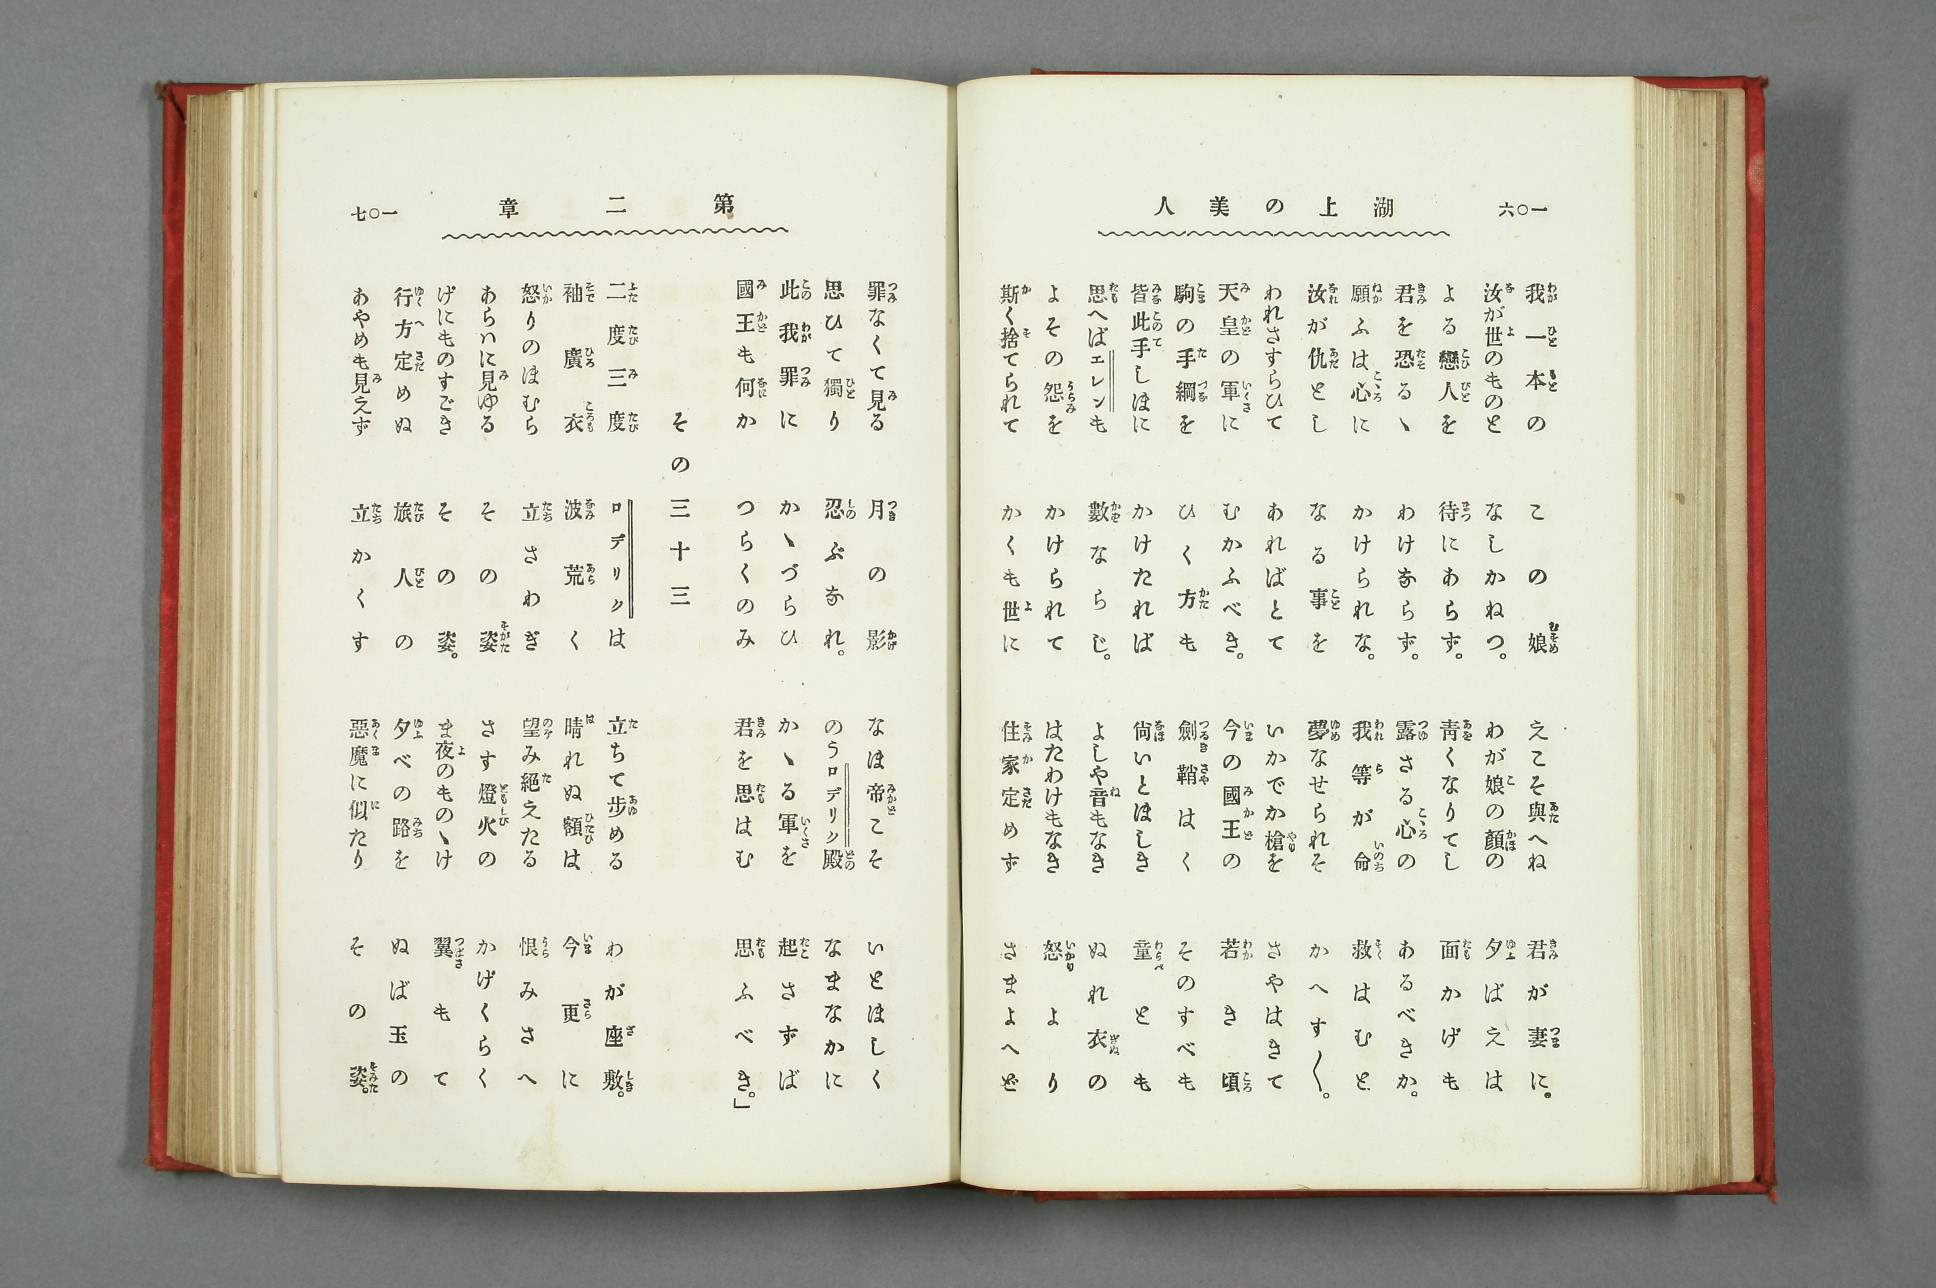 一〇六
湖上の美人
我一本の　この娘　えこそ與へね　君が妻に。
汝が世のものと　なしかねつ。　わが娘の顏の　夕ばえは
よる戀人を　待にあらず。　靑くなりてし　面かげも
君を恐るゝ　わけならず。　露さる心の　あるべきか。
願ふは心に　かけられな。　我等が命　救はむと
汝が仇とし　なる事を　夢なせられそ　かへす〱。
われさすらひて　あればとて　いかでか槍を　さやはきて
天皇の軍に　むかふべき。　今の國王の　若き頃
駒の手綱を　ひく方も　劍鞘はく　そのすべも
皆此手しほに　かけたれば　尙いとほしき　童とも
思へばエレンも　數ならじ。　よしや音もなき　ぬれ衣の
よその怨を　かけられて　はたわけもなき　怒より
斯く捨てられて　かくも世に　住家定めず　さまよへど
第二章
一〇七
罪なくて見る　月の影　なほ帝こそ　いとほしく
思ひて獨り　忍ぶなれ。　のうロデリク殿　なまなかに
此我罪に　かゝづらひ　かゝる軍を　起さずば
國王も何か　つらくのみ　君を思はむ　思ふべき。」
その三十三
二度三度　ロデリクは　立ちて步める　わが座敷。
袖廣衣　波荒く　晴れぬ額は　今更に
怒りのほむら　立さわぎ　望み絕えたる　恨みさへ
あらハに見ゆる　その姿　さす燈火の　かげくらく
げにものすごき　その姿。　ま夜のものゝけ　翼もて
行方定めぬ　旅人の　夕べの路を　ぬば玉の
あやめも見えず　立かくす　惡魔に似たり　その姿。